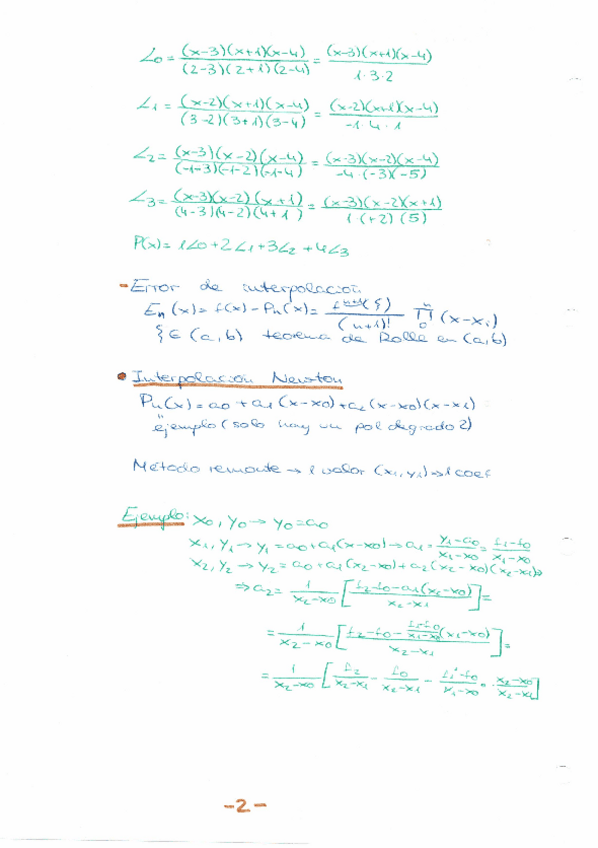 L0 = (x-3)(x+1)(x-4) / (2-3)(2+1)(2-4) = (x-3)(x+1)(x-4) / 1·3·2
L1 = (x-2)(x+1)(x-4) / (3-2)(3+1)(3-4) = (x-2)(x+1)(x-4) / -1·4·1
L2 = (x-3)(x-2)(x-4) / (-1-3)(-1-2)(-1-4) = (x-3)(x-2)(x-4) / -4·(-3)(-5)
L3 = (x-3)(x-2)(x+1) / (4-3)(4-2)(4+1) = (x-3)(x-2)(x+1) / 1(+2)(5)
P(x) = 1L0+2L1+3L2+4L3
- Error de interpolación
En(x) = f(x) - Pn(x) = f^(n+1)(ξ) / (n+1)! ∏ n 0 (x-xi)
ξ ∈ (a,b) teorema de Rolle en (a,b)
• Interpolación Newton
Pn(x) = a0 + a1(x-x0) + a2(x-x0)(x-x1)
" ejemplo (solo hay un pol degrado 2)
Método remonte → 1 valor (xi,yi) → 1 coef
Ejemplo: x0, y0 → y0 = a0
x1, y1 → y1 = a0 + a1(x-x0) → a1 = y1-a0 / x1-x0 = f1-f0 / x1-x0
x2, y2 → y2 = a0 + a1(x2-x0) + a2(x2-x0)(x2-x1) ⇒
⇒ a2 = 1 / x2-x0 [ f2-f0-a1(x2-x0) / x2-x1 ] =
= 1 / x2-x0 [ f2-f0 - f1-f0 / x1-x0 (x1-x0) / x2-x1 ] =
= 1 / x2-x0 [ f2 / x2-x1 - f0 / x2-x1 - f1-f0 / x1-x0 · x2-x0 / x2-x1 ]
-2-